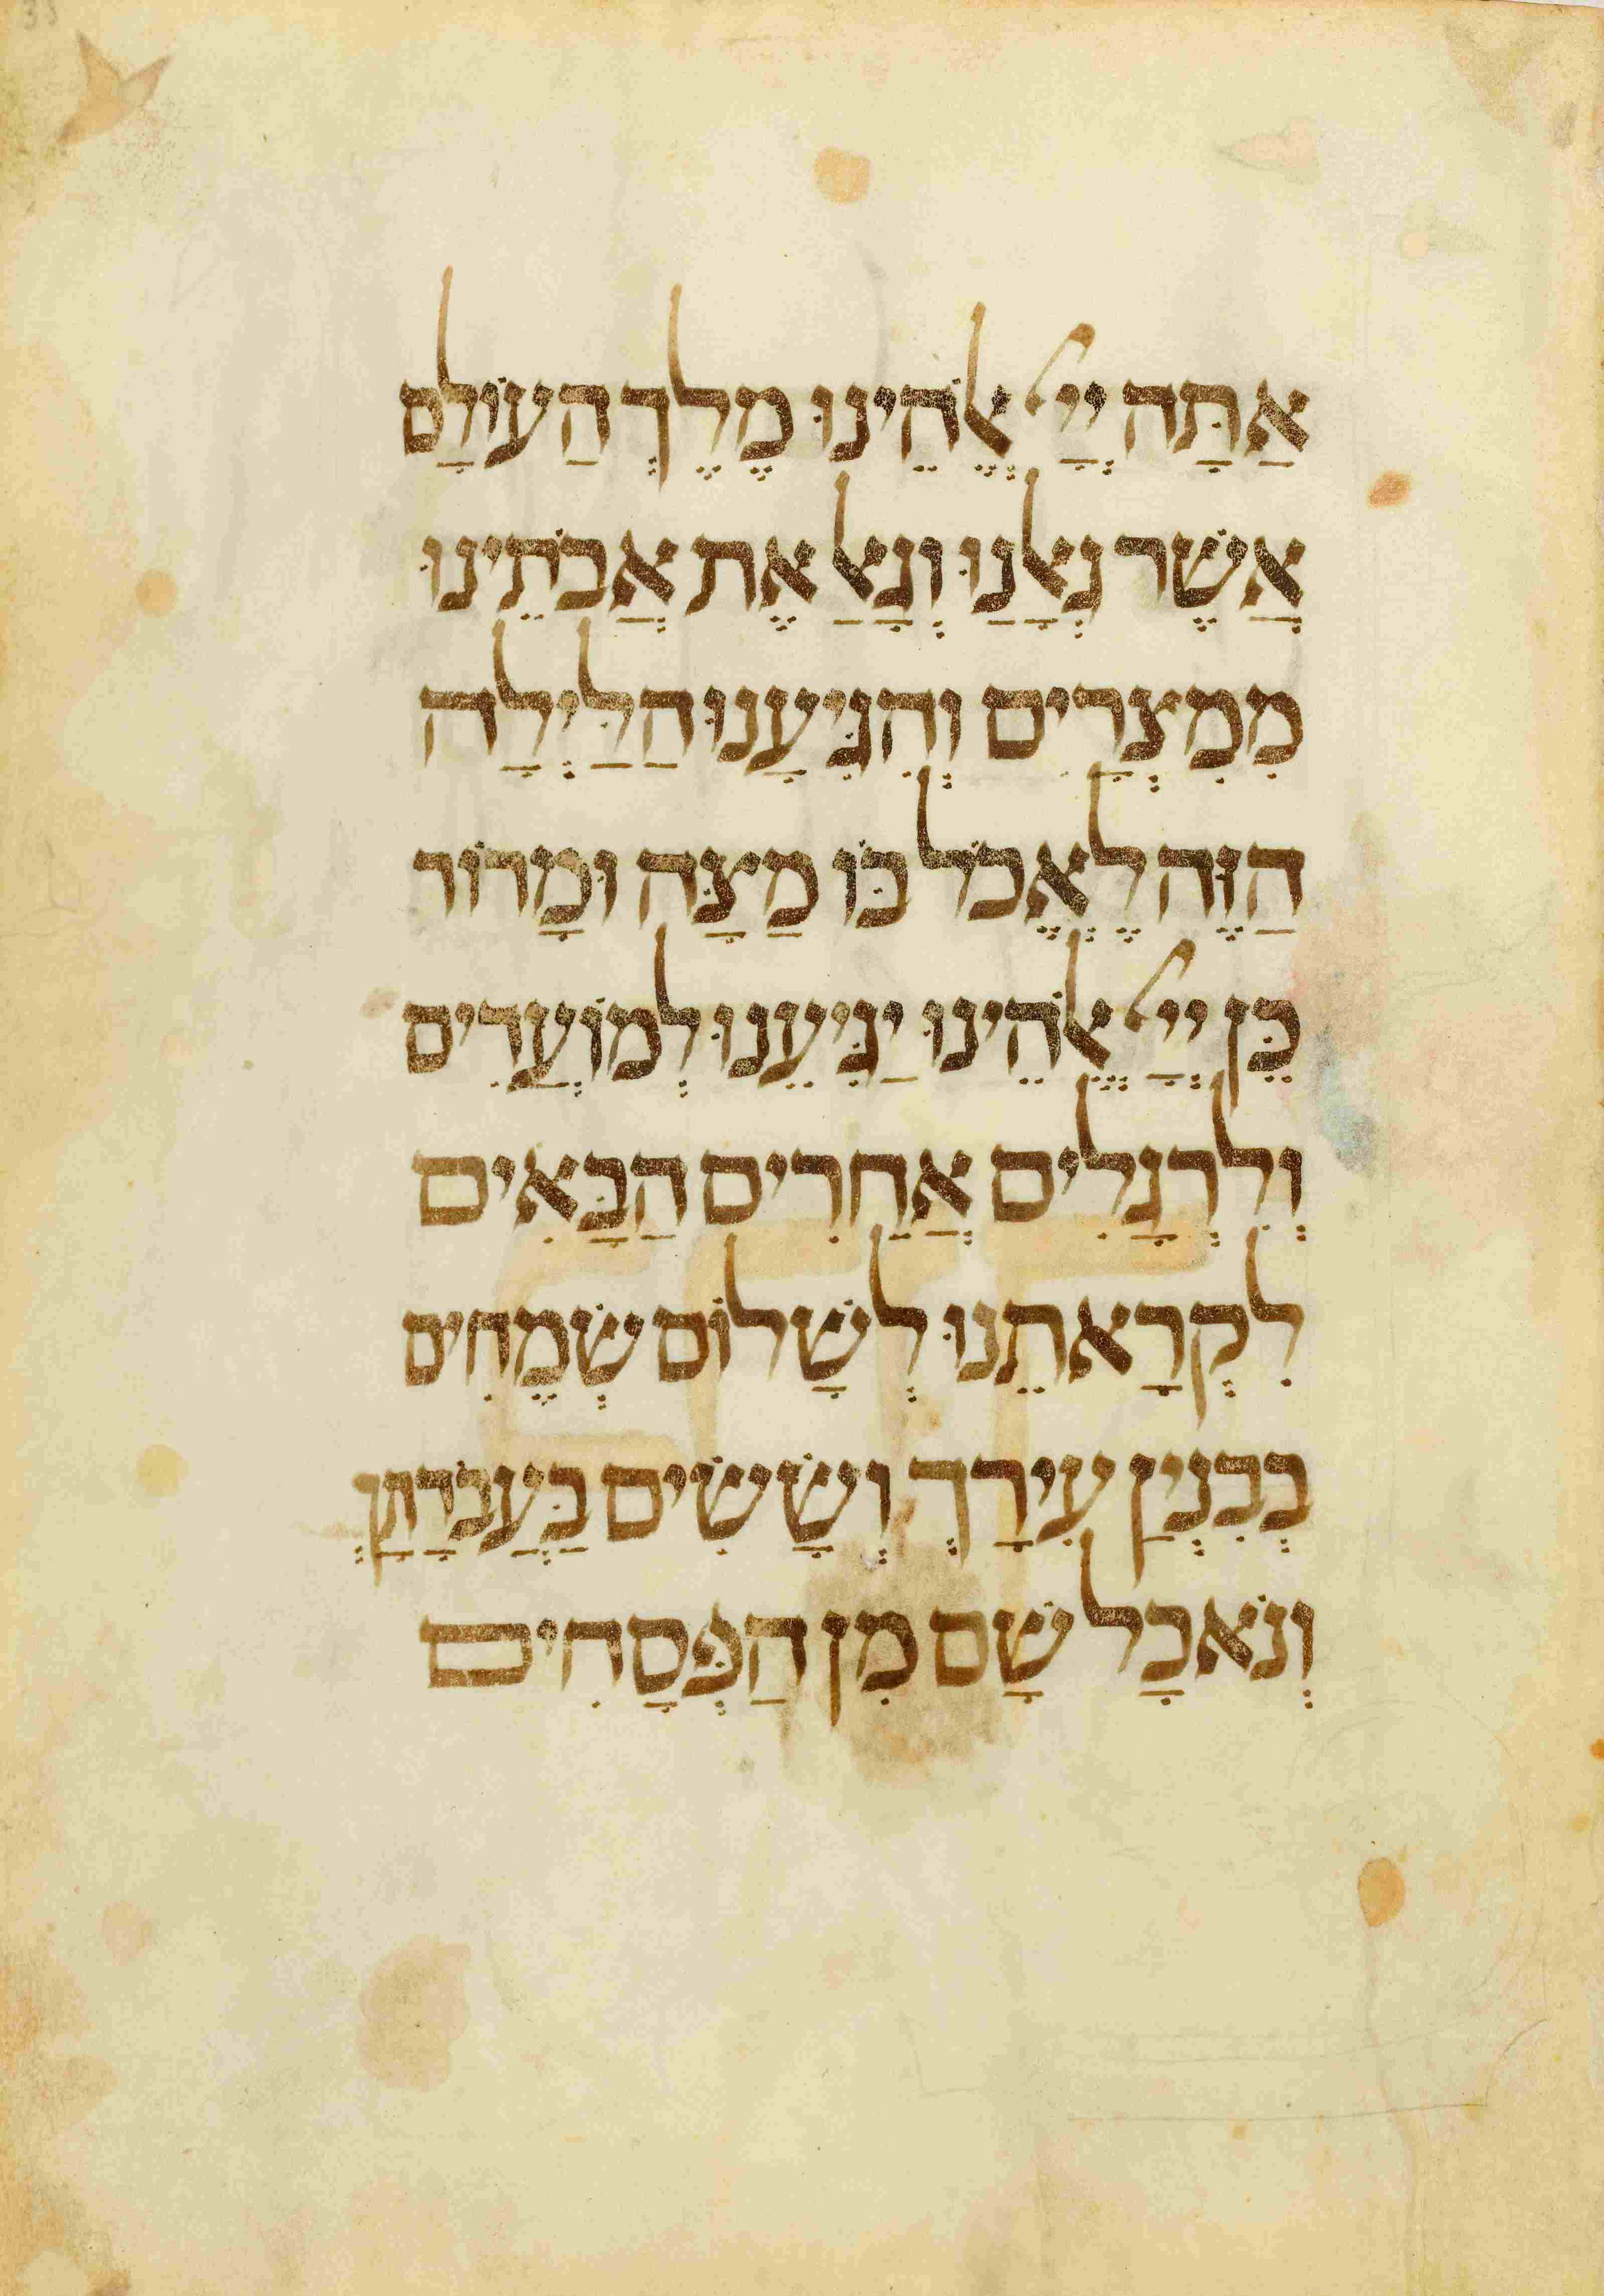 אַתָּה יְיָ אֱלֹהֵינוּ מֶלֶךְ הַעוֹלָם
אֲשֶׁר גְּאָלַנוּ וְגָאַל אֶת אֲבֹתֵינוּ
מִמִּצְרַיִם וְהִגִּיעָנוּ הַלַּיְלָה
הַזֶּה לֶאֱכֹל בּוֹ מַצָּה וּמָרוֹר
כֵּן יְיָ אֱלֹהֵינוּ יַגִּיעֵנוּ לְמוֹעֲדִים
וְלִרְגָלִים אֲחַרִים הַבָּאִים
לִקְרָאתֵנוּ לְשָׁלוֹם שְׂמֵחִים
בְּבִנְיַן עִירָךְ וְשָׂשִׂים בַּעֲבֹדָתָךְ
וְנֹאכָל שָׁם מִן הַפְּסָחִים